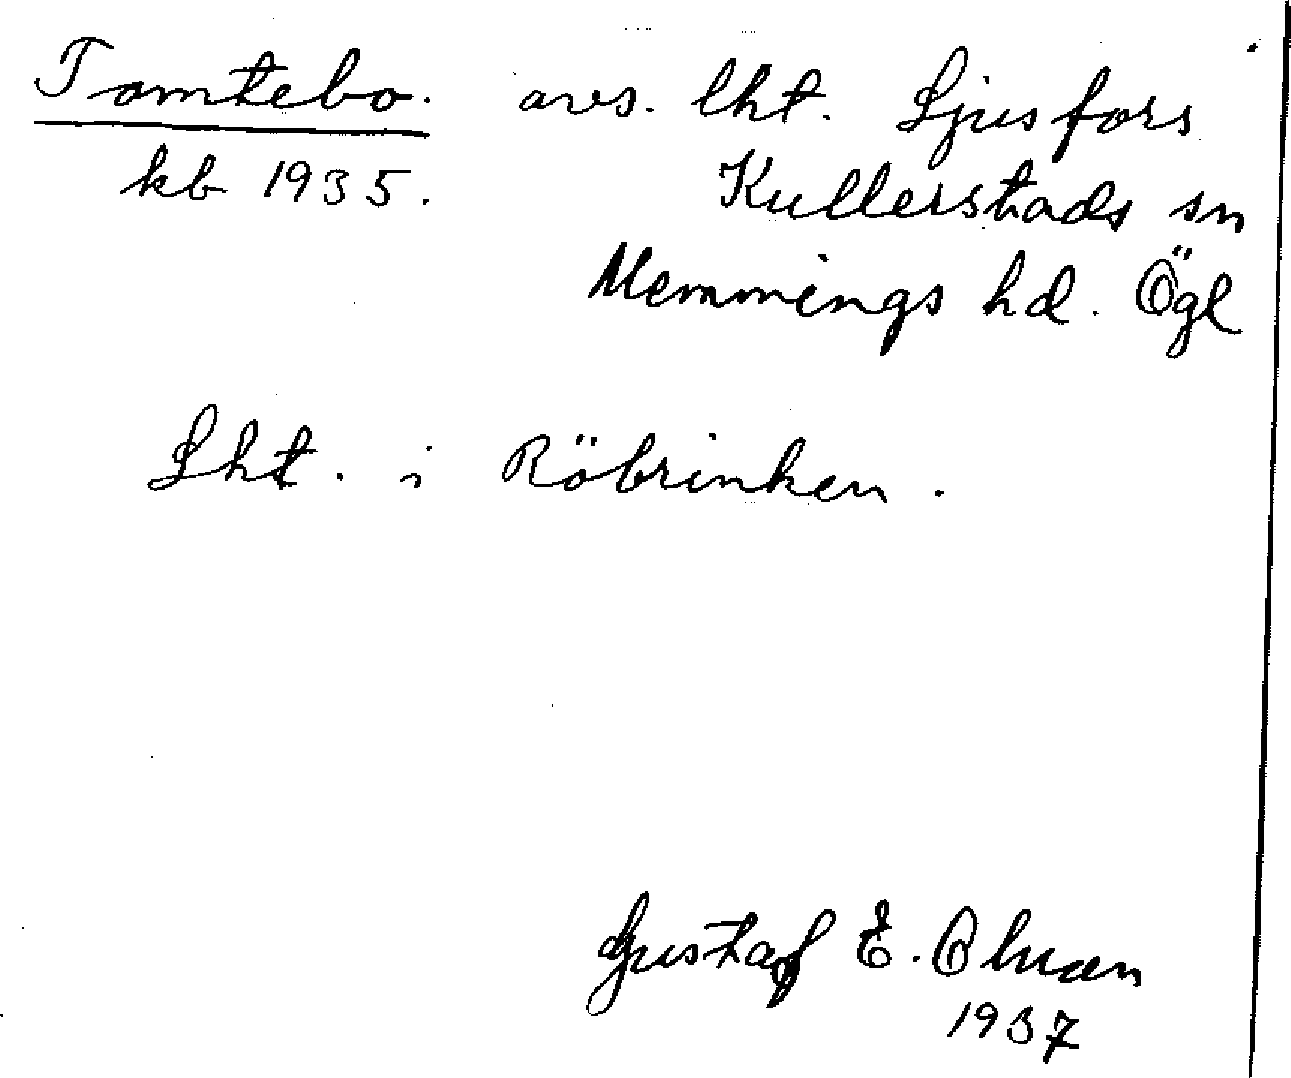 Tomtebo. avs. lht. Ljusfors
kb 1935. Kullerstads sn
Memmings hd. Ögl
Lht. i Röbrinken.
Gustaf E.
1937